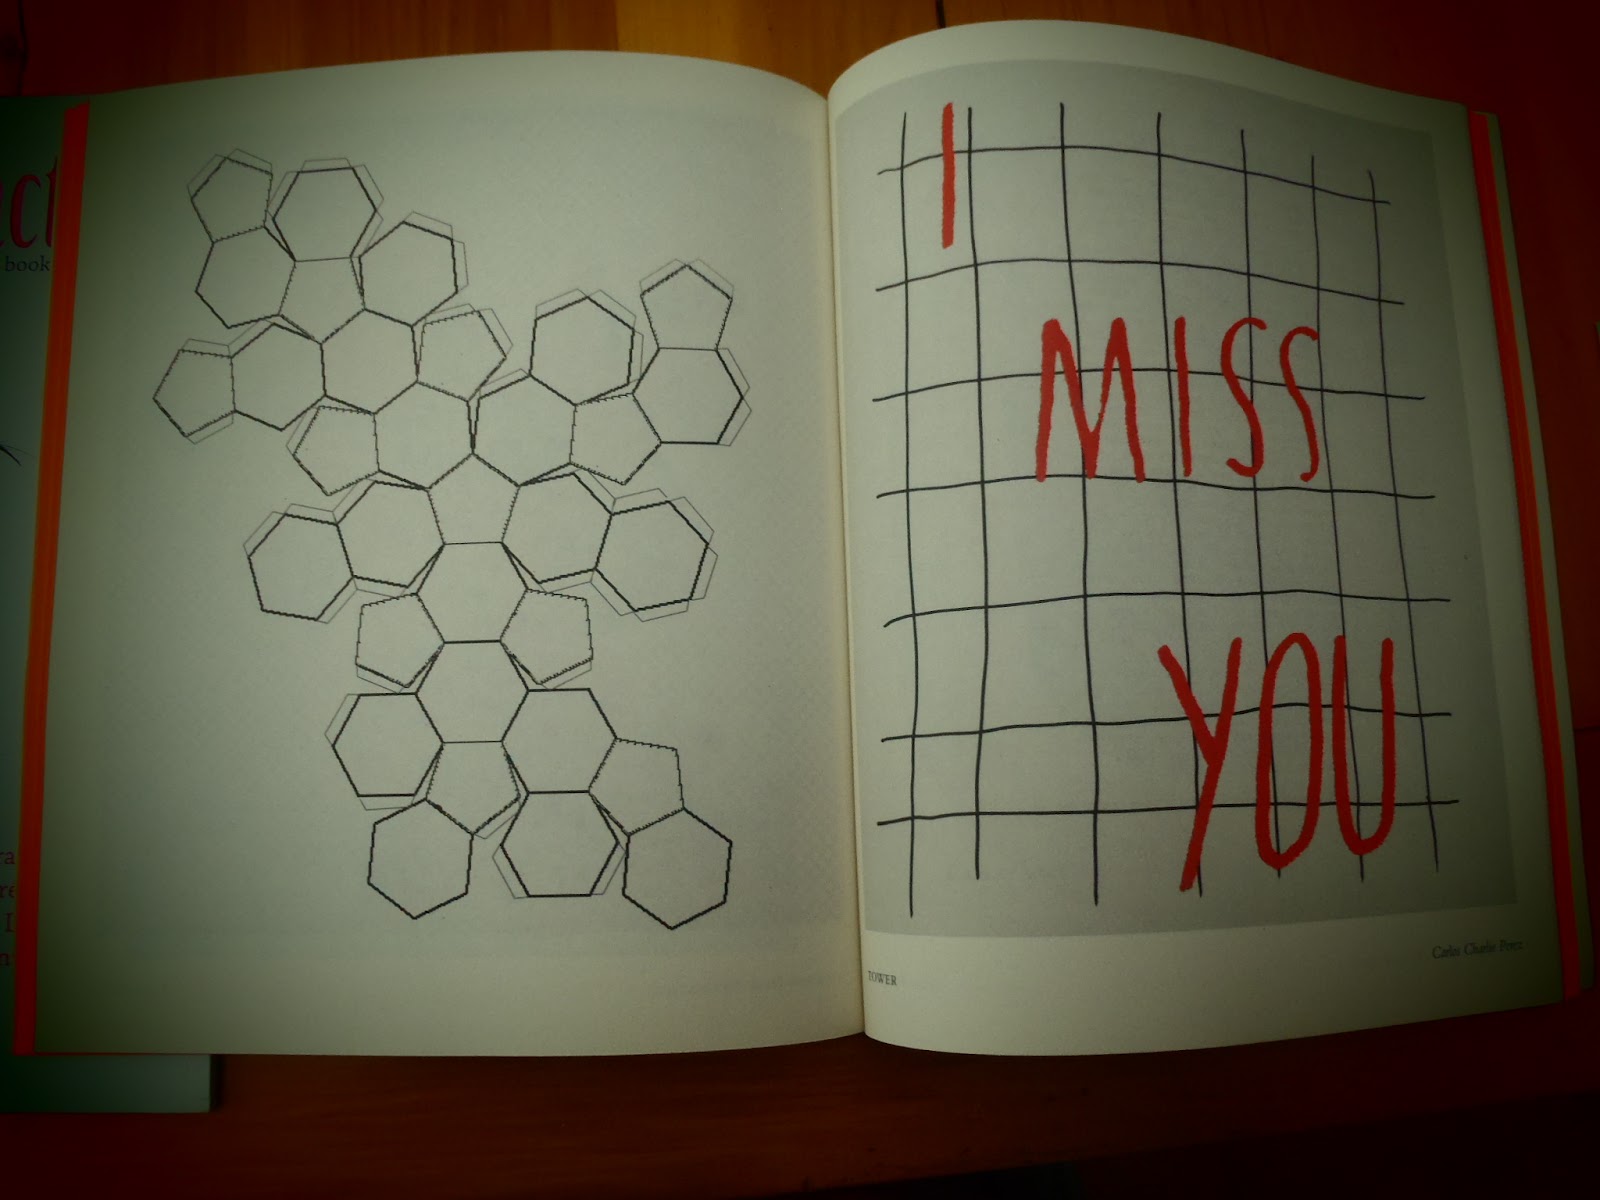 ct
book
I
MISS
YOU
TOWER
Carlos Charlie Perez